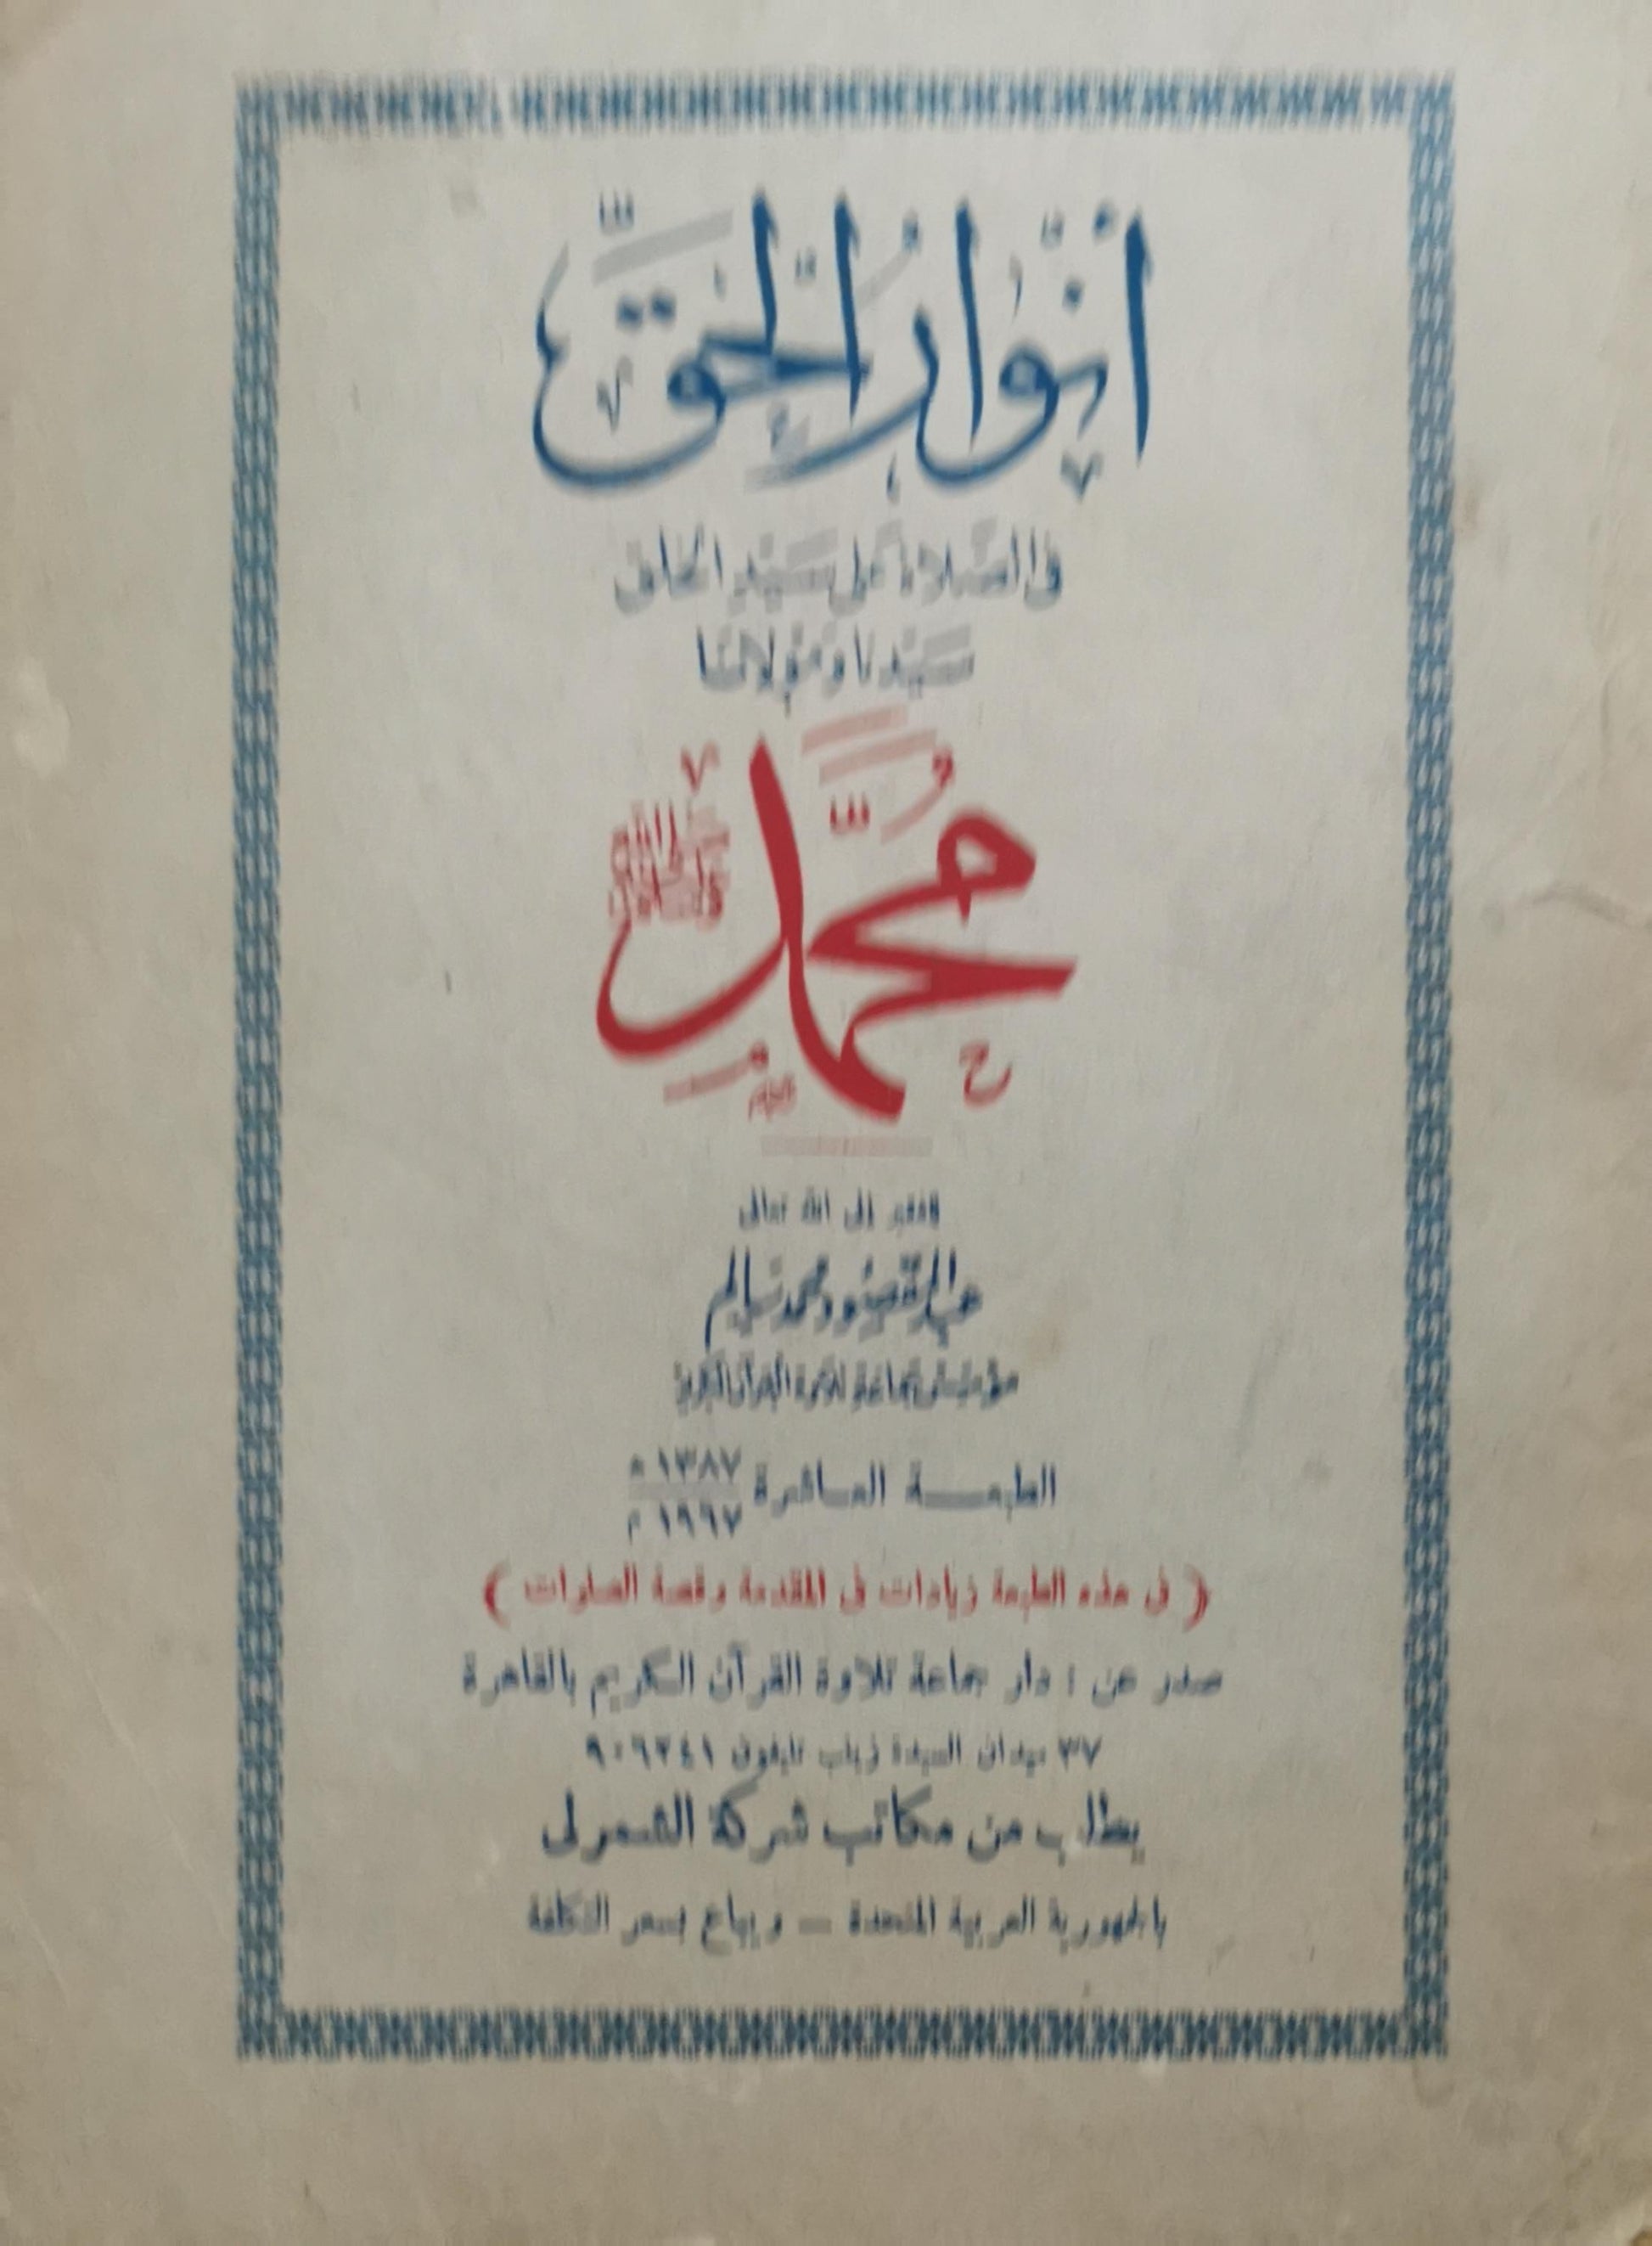 أنوار الحق
في الصلاة على سيد الخلق
سيدنا ومولانا
محمد
صلى الله عليه وسلم
للفقير إلى الله تعالى
عبد المقصود محمد سالم
مؤسس جماعة تلاوة القرآن الكريم
الطبعة العاشرة ١٣٨٧ ه
١٩٦٧ م
( في هذه الطبعة زيادات في المقدمة وقصة الصلوات )
صدر عن : دار جماعة تلاوة القرآن الكريم بالقاهرة
٣٧ ميدان السيدة زينب تليفون
يطلب من مكاتب شركة الشمرلى
بالجمهورية العربية المتحدة – ويباع بسعر التكلفة